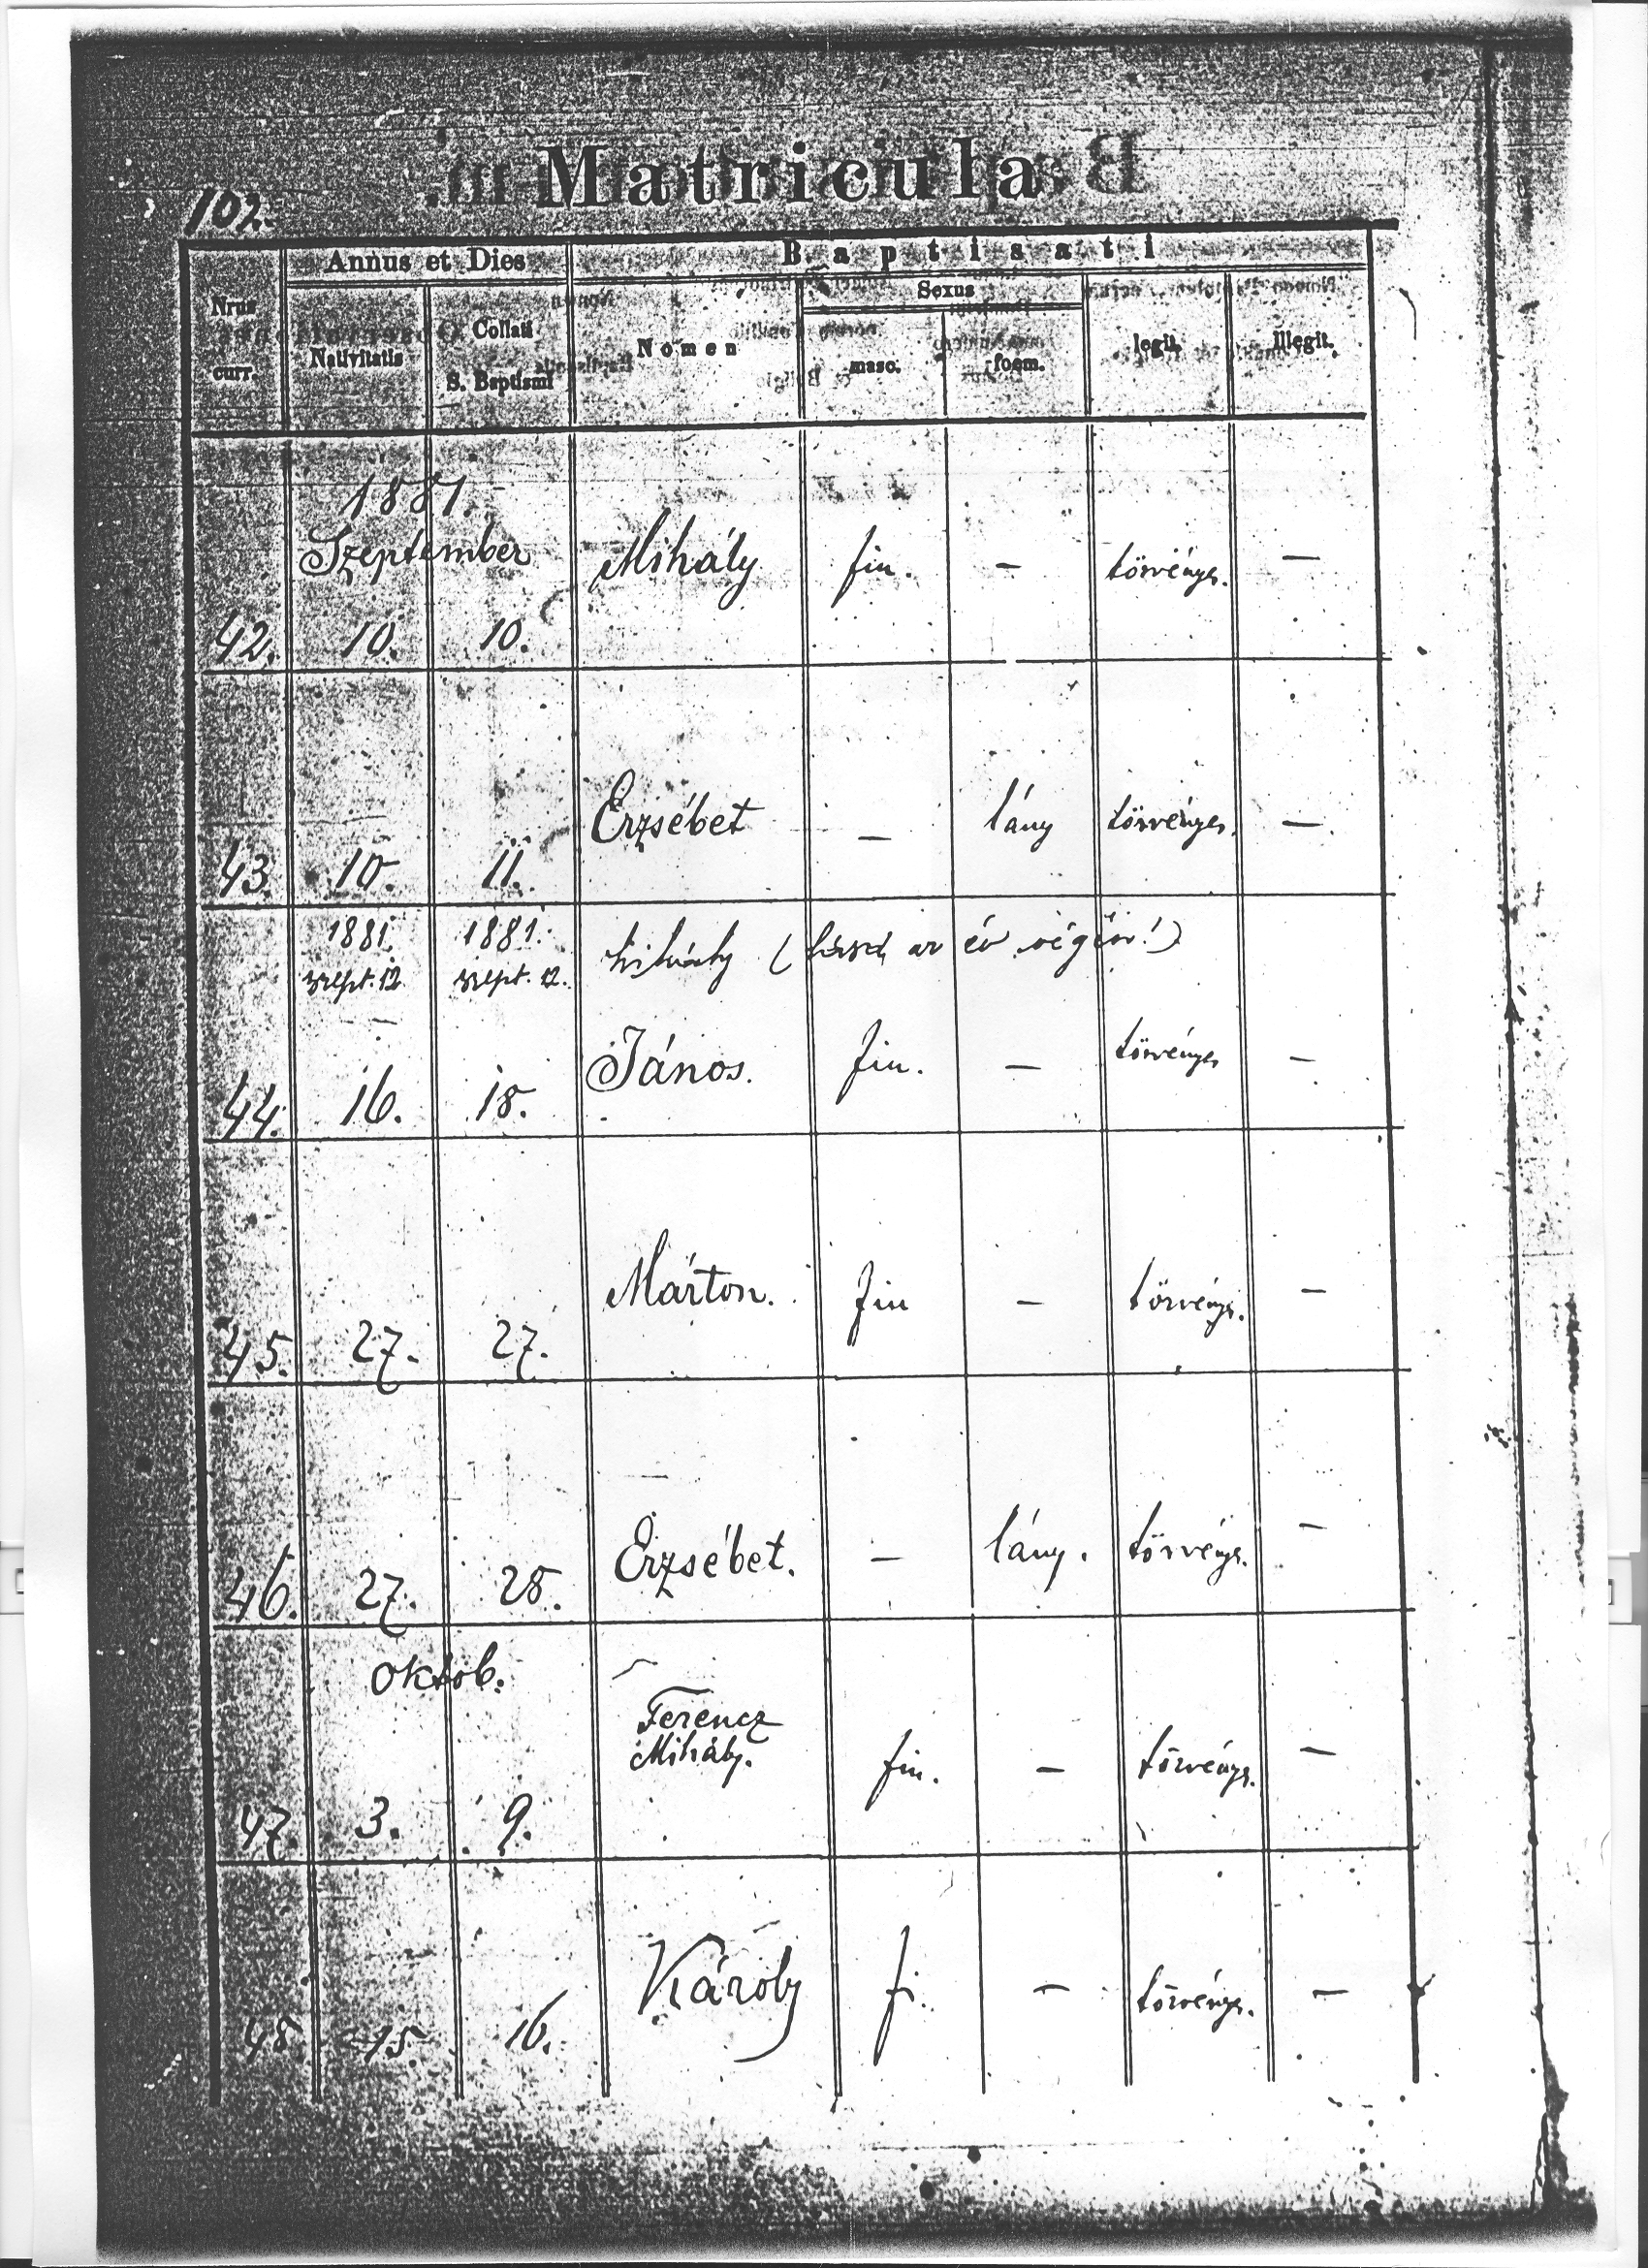 Matricula
102.
Annus et Dies
Baptisati
Nrus curr.
Nativitatis
Collati S. Baptismi
Nomen
Sexus
masc.
foem.
legit.
illegit.
1881.
Szeptember
42. 10. 10. Mihály fiu. – törvényes. –
43. 10. 11. Erzsébet – lány törvényes. –
1881. 1881.
szept. 12. szept. 12. (lásd az év végén!)
44. 16. 18. János. fiu. – törvényes –
45. 27. 27. Márton. fiu – törvényes. –
46. 27. 28. Erzsébet. – lány. törvényes. –
októb.
47. 3. 9. Ferencz Mihály. fiu. – törvényes. –
48. 15. 16. Károly fi. – törvényes. –